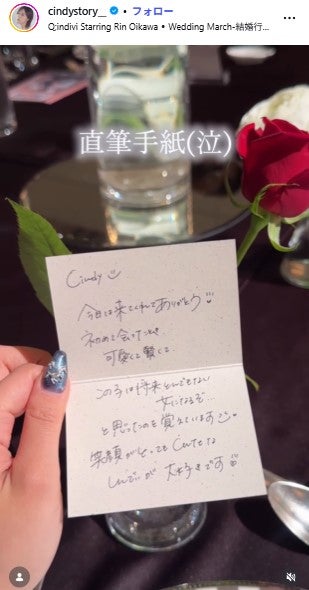 cindystory__ • フォロー
Q;indivi Starring Rin Oikawa • Wedding March-結婚行...
直筆手紙(泣)
Cindy
今日は来てくれてありがとう
初めて会ったとき
可愛くて賢くて
この子は将来とんでもない
女になるぞ…
と思ったのを覚えています
笑顔がとってもCuteな
Cindyが大好きです